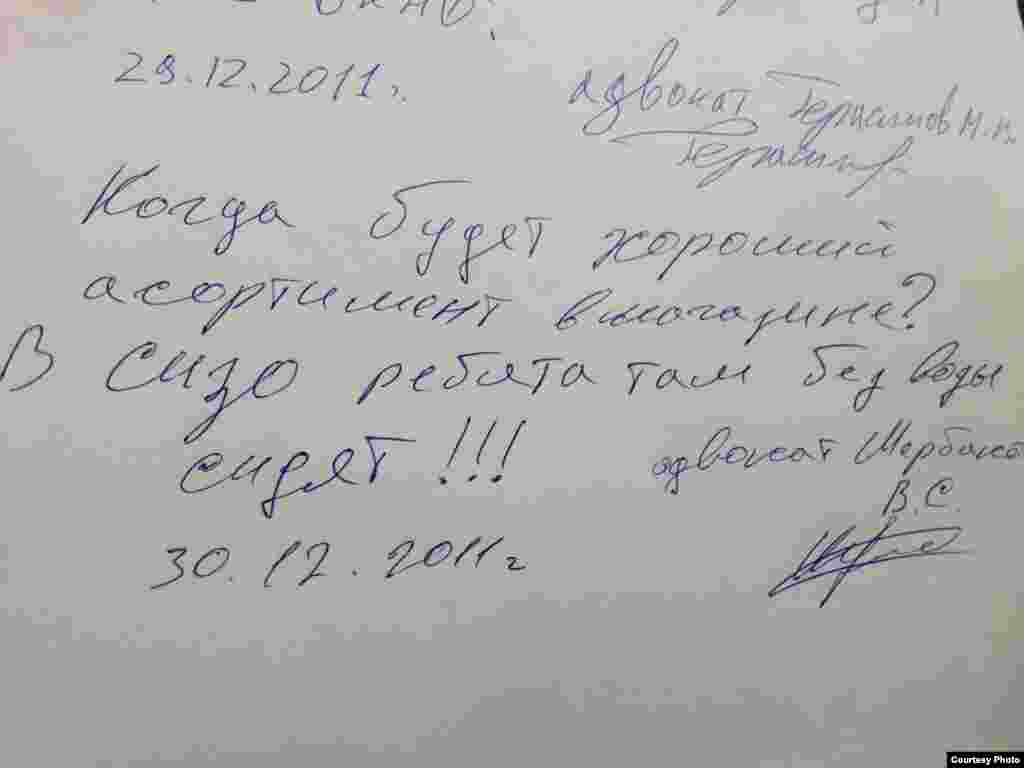 29.12.2011г.
адвокат Герасимов М.Н.
Когда будет хороший
асортимент в магазине?
В СИЗО ребята там без воды
сидят!!!
адвокат Щербако
В.С.
30.12.2011г
Courtesy Photo